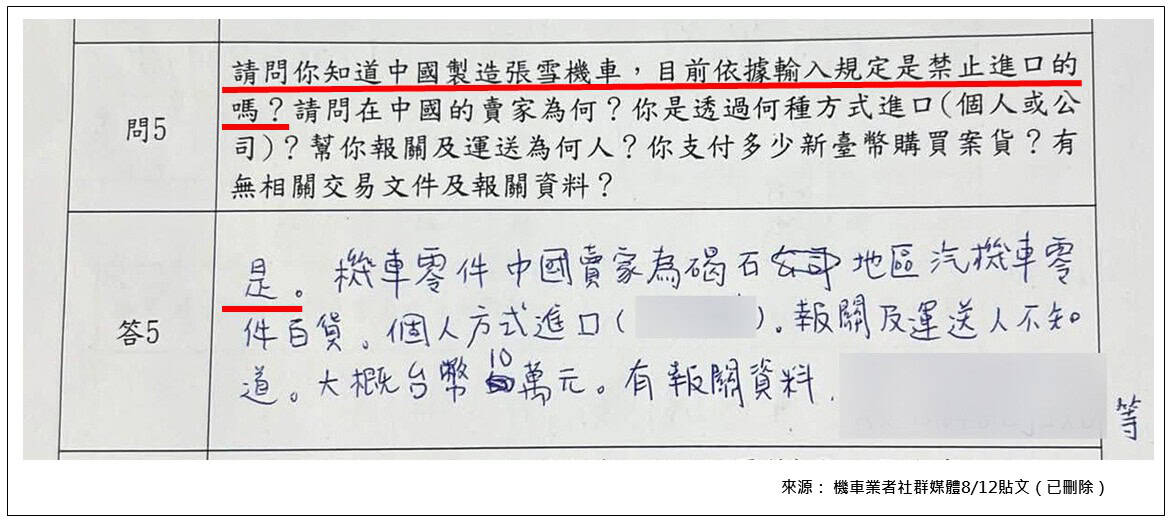 請問你知道中國製造張雪機車，目前依據輸入規定是禁止進口的
嗎？請問在中國的賣家為何？你是透過何種方式進口(個人或公
問5
司)？幫你報關及運送為何人？你支付多少新臺幣購買案貨？有
無相關交易文件及報關資料？
是。機車零件中國賣家為碣石地區汽機車零
答5
件百貨。個人方式進口( )。報關及運送人不知
道。大概台幣10萬元。有報關資料.
等
來源： 機車業者社群媒體8/12貼文（已刪除）